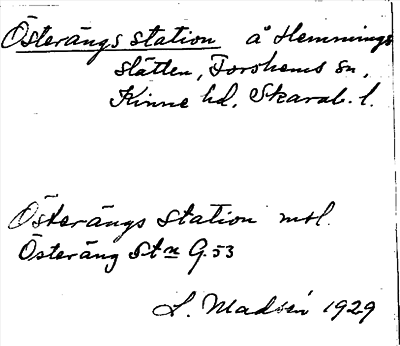 Österängs station å Hemmings
slätten, Forshems sn,
Kinne hd, Skarab. l.
Österängs station msl.
Österäng Stn G. 53
L. Madsén 1929